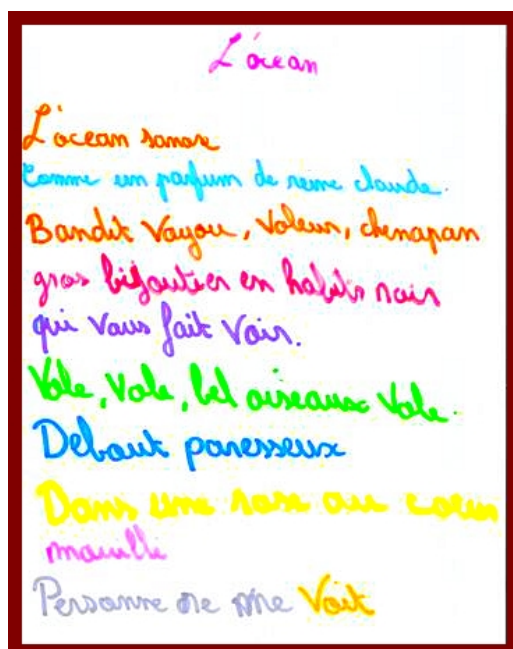 L'ocean
L'ocean sonore
Comme un parfum de reine claude.
Bandit Voyou, Voleur, chenapan
gros bijoutier en habits noir
qui vous fait Voir.
Vole, Vole, bel oiseaux Vole.
Debout paresseux
Dans une rose au coeur
mouille
Personne ne me Voit